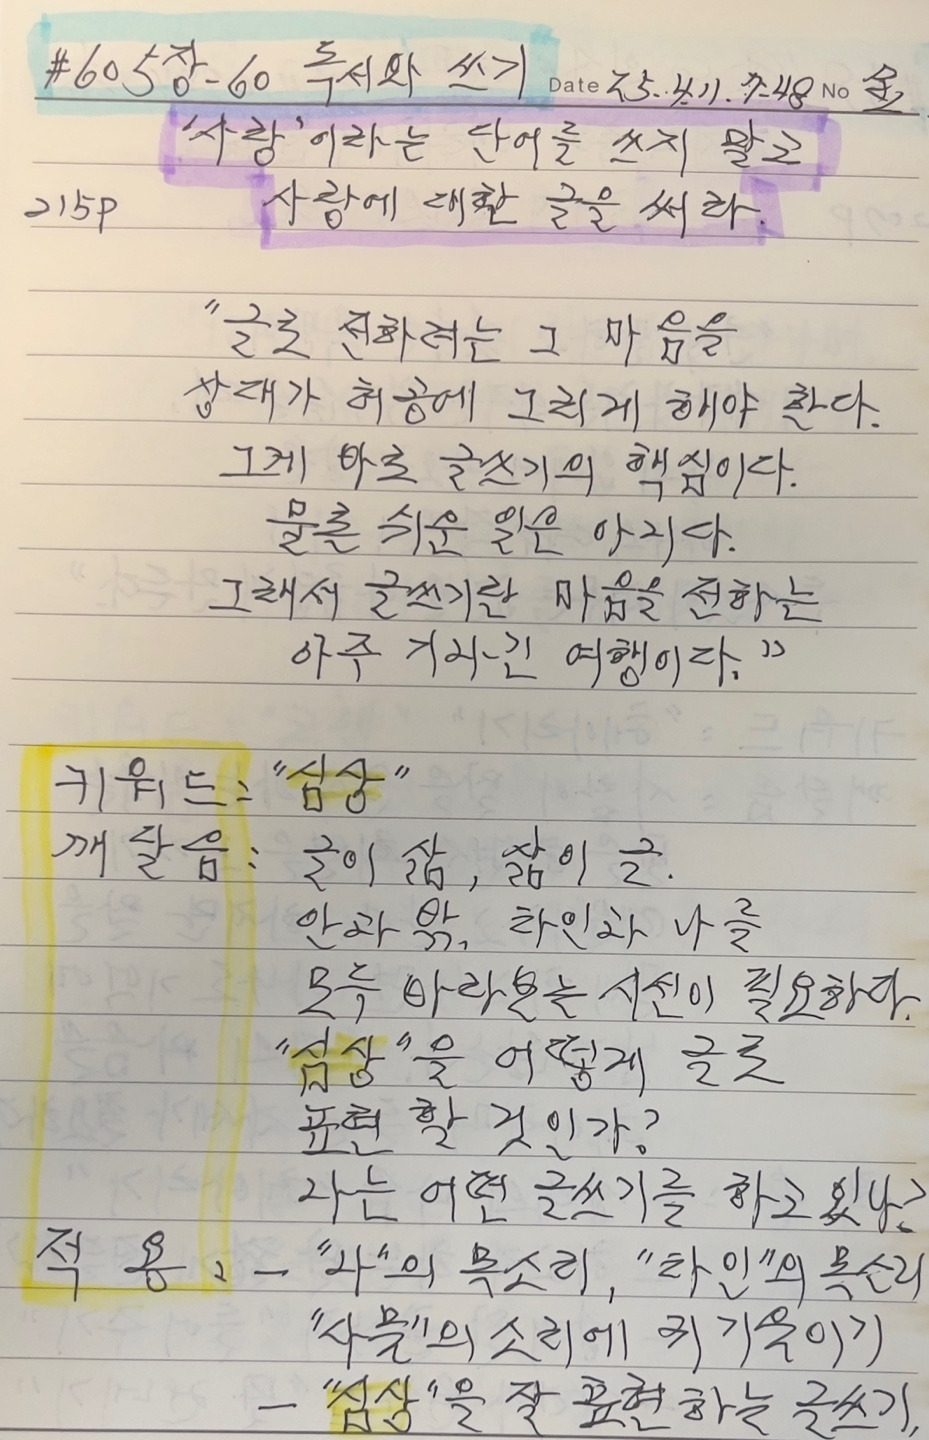 #60 5장-60 독서와 쓰기 Date 25.4.11. 7:48 No 금.
'사랑'이라는 단어를 쓰지 말고
215p 사랑에 대한 글을 써라.
"글로 전하려는 그 마음을
상대가 허공에 그리게 해야 한다.
그게 바로 글쓰기의 핵심이다.
물론 쉬운 일은 아니다.
그래서 글쓰기란 마음을 전하는
아주 기나-긴 여행이다."
키워드: "심상"
깨달음: 글이 삶, 삶이 글.
안과 밖, 타인과 나를
모두 바라보는 시선이 필요하다.
"심상"을 어떻게 글로
표현 할 것인가?
나는 어떤 글쓰기를 하고 있나?
적 용: - "나"의 목소리, "타인"의 목소리
"사물"의 소리에 귀 기울이기
- "심상"을 잘 표현하는 글쓰기.